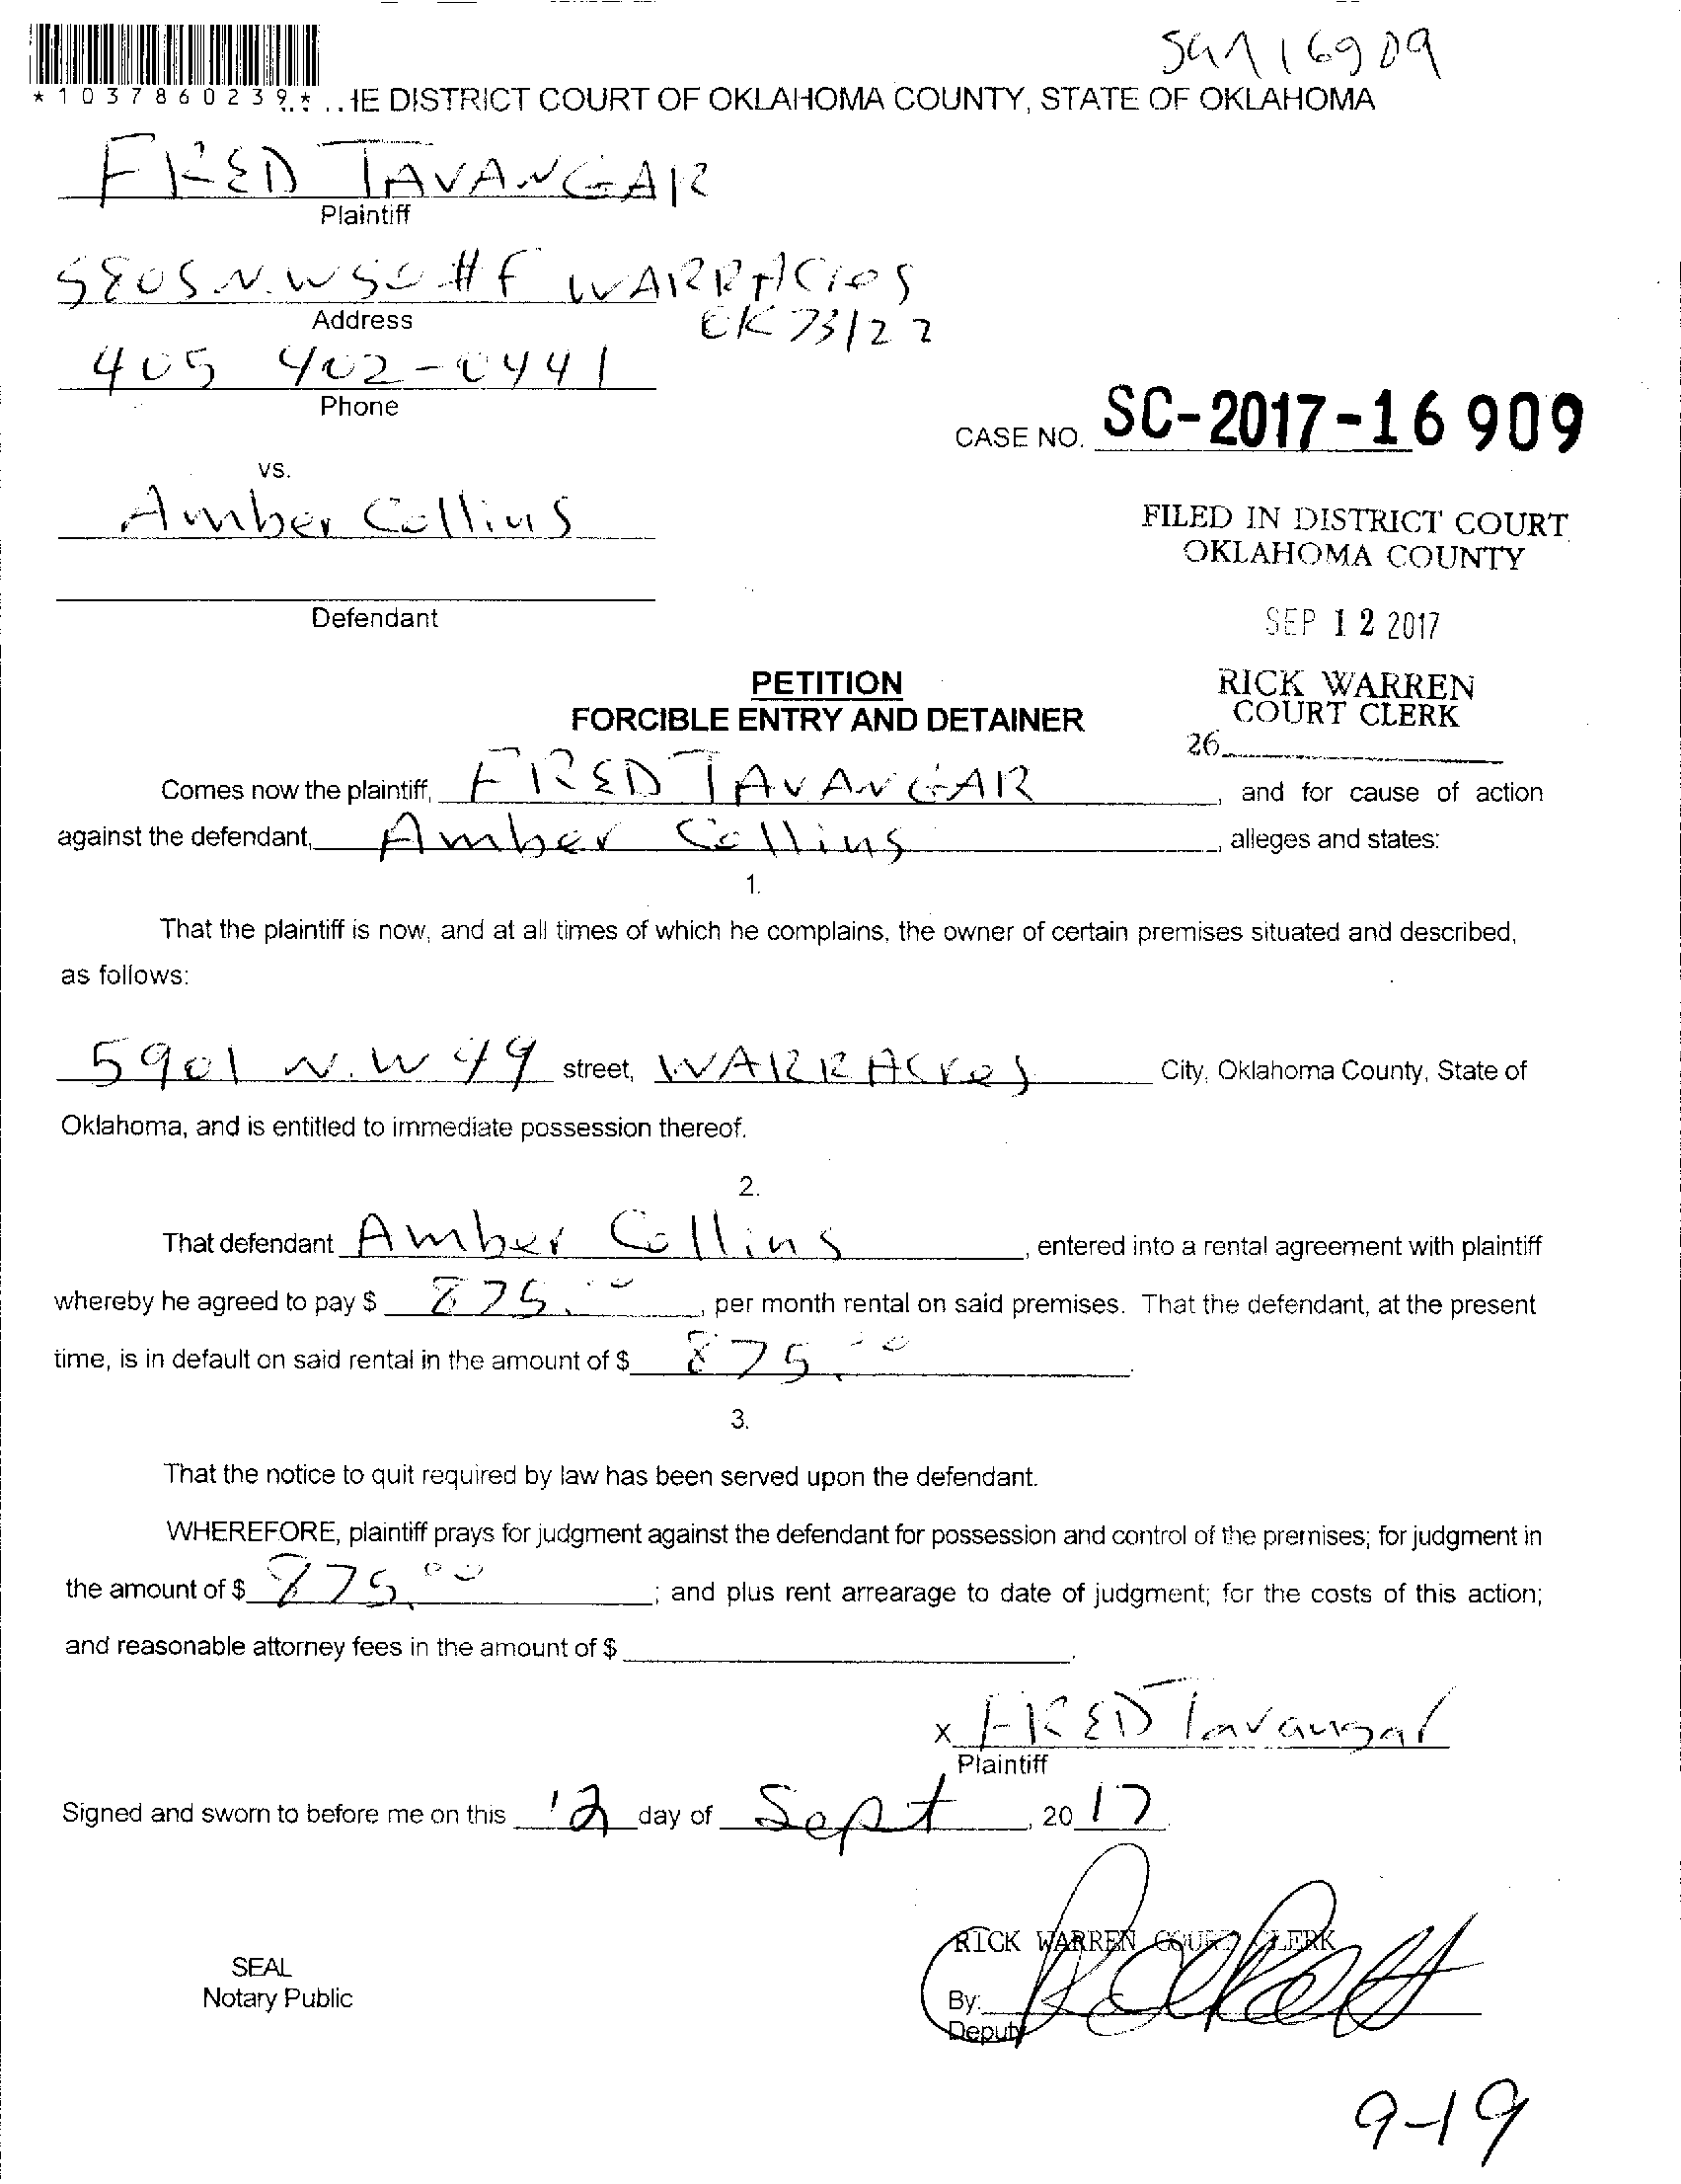 16909
* 1 0 3 7 8 6 0 2 3 9 * IE DISTRICT COURT OF OKLAHOMA COUNTY, STATE OF OKLAHOMA
FRED TAVANGAR
Plaintiff
5805 N.W 50 #F WARRACres
Address
OK 73122
405 402-0441
Phone
CASE NO. SC-2017-16 909
vs.
Amber Collins
FILED IN DISTRICT COURT
OKLAHOMA COUNTY
Defendant
SEP 12 2017
PETITION
FORCIBLE ENTRY AND DETAINER
RICK WARREN
COURT CLERK
26
Comes now the plaintiff, FRED TAVANGAR, and for cause of action
against the defendant, Amber Collins, alleges and states:
1.
That the plaintiff is now, and at all times of which he complains, the owner of certain premises situated and described,
as follows:
5901 N.W 49 street, WARRACres City, Oklahoma County, State of
Oklahoma, and is entitled to immediate possession thereof.
2.
That defendant Amber Collins, entered into a rental agreement with plaintiff
whereby he agreed to pay $ 875.00, per month rental on said premises. That the defendant, at the present
time, is in default on said rental in the amount of $ 875.00.
3.
That the notice to quit required by law has been served upon the defendant.
WHEREFORE, plaintiff prays for judgment against the defendant for possession and control of the premises; for judgment in
the amount of $ 875.00; and plus rent arrearage to date of judgment; for the costs of this action;
and reasonable attorney fees in the amount of $ .
x FRED Tavangar
Plaintiff
Signed and sworn to before me on this 12 day of Sept, 20 17
RICK WARREN COURT CLERK
SEAL
Notary Public
By:
Deputy
9-19